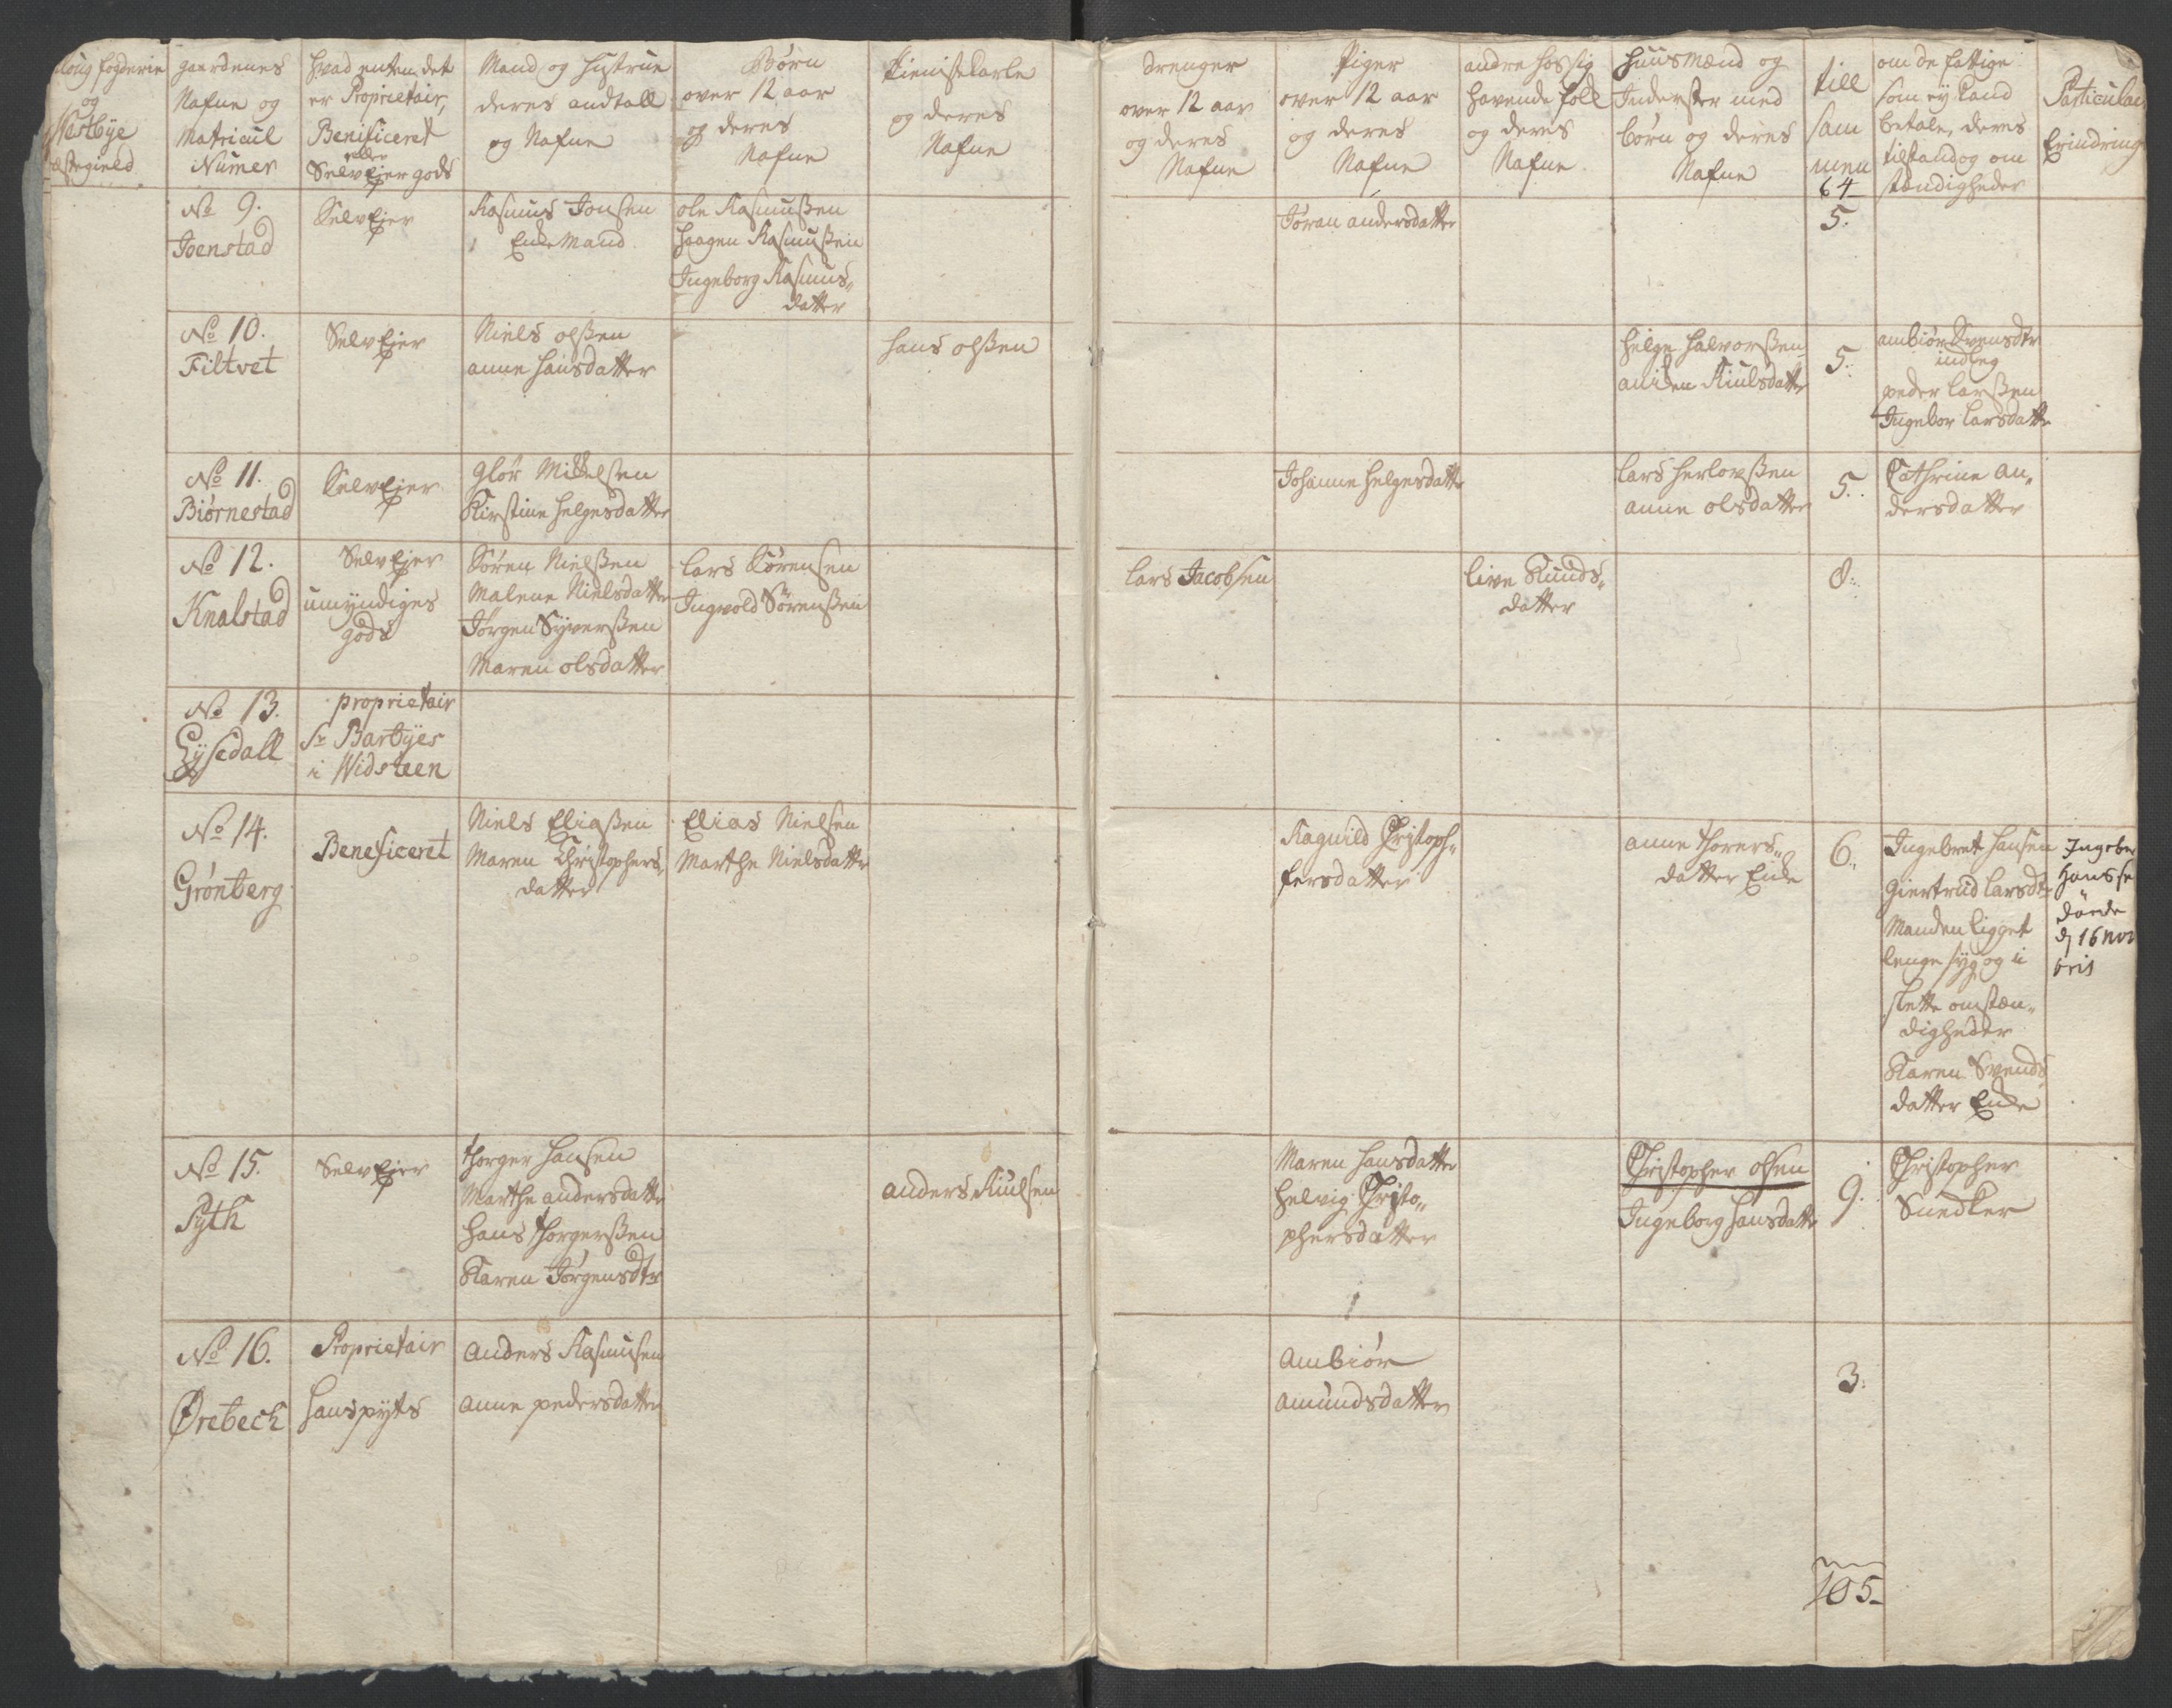 foug fogderie
og
Nestbÿe
estegield
gaardenes
Nafne og
Matricul
Numer
hvad enten det
er Proprietair,
Benificeret
eller
SelvEjer gods
Mand og Hustrue
deres andtall
og Nafne
Børn
over 12 aar
og deres
Nafne
Tienistekarle
og deres
Nafne
drenger
over 12 aar
og deres
Nafne
Piger
over 12 aar
og deres
Nafne
andre hos sig
havende folk
og deres
Nafne
Huusmænd og
Inderster med
børn og deres
Nafne
till
sam
men
64
om de fattige
som ey kand
betale, deres
tilstand og om
stændigheder
Particulai
Erindring
No 9.
Joenstad
SelvEjer
Rasmus Jonsen
1 EnkeMand
ole Rasmusßen
Haagen Rasmusßen
Ingeborg Rasmus„
datter
Jøran andersdatter
5.
No 10.
Filtvet
SelvEjer
Niels olsßen
anne Hansdatter
hans olsßen
helge halvorsßen
aniken Kiulsdatter
5.
ambiør Svensdtr
indleg
peder larsßen
Ingebor larsdatter
No 11.
Biørnestad
SelvEjer
Glør Mikkelsen
Kirstine helgesdatter
Johanne helgesdatter
lars herlovsßen
anne olsdatter
5.
Cathrine An„
dersdatter
No 12.
Knalstad
SelvEjer
umÿndiges
gods
Søren Nielsßen
Malene Nielsdatter
Jørgen Sÿversßen
Maren olsdatter
lars Sørensen
Ingvold Sørensßen
lars Jacobsen
live Knuds„
datter
8.
No 13.
Lÿsedall
proprietair
Sr Barbÿes
i Widsteen
No 14.
Grønberg
Beneficeret
Niels Eliasßen
Maren Christophers„
datter
Elias Nielsen
Marthe Nielsdatter
Ragnild Christoph„
fersdatter
anne thorers„
datter Enke
6.
Ingebret Hansen
Giertrud larsdtr
Manden ligget
lenge sÿg og i
slette omstæn„
digheder
Karen Svends
datter Enke
Ingebre
Hansse
døde
d 16 nov
bris
No 15.
Pÿth
SelvEjer
thorger hansen
Marthe andersdatter
hans thorgersßen
Karen Jørgensdtr
anders Kiulsen
Maren hansdatter
helvig Christo„
phersdatter
Christopher olsen
Ingeborg hansdatter
9.
Christopher
Snedker
No 16.
Ørebech
Proprietair
hans pÿts
anders Rasmusen
anne pedersdatter
ambiør
amundsdatter
3.
105